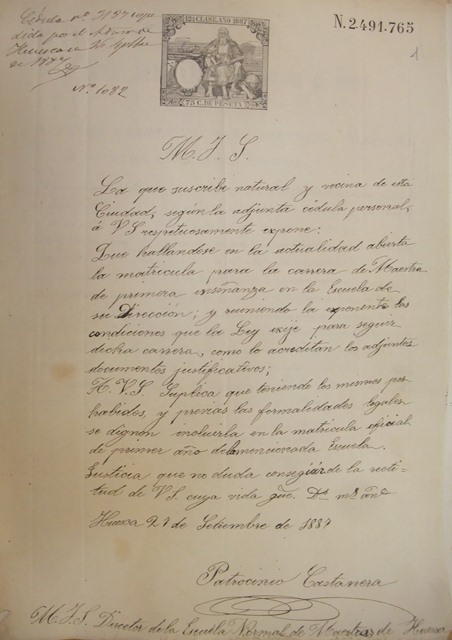 Cédula nº 3157 expe
dida por el Admor de
Huesca a 26 Sptbre
de 1887
Nº 1082
12ª CLASE. AÑO 1887
75 C. DE PESETA
N. 2.491.765
1
M. I. S.
La que suscribe natural y vecina de esta
Ciudad, según la adjunta cédula personal,
á V.S. respetuosamente expone:
Que hallandose en la actualidad abierta
la matricula para la carrera de Maestra
de primera enseñanza en la Escuela de
su Dirección; y reuniendo la exponente las
condiciones que la Ley exije para seguir
dicha carrera, como lo acreditan los adjuntos
documentos justificativos;
A. V.S. Suplica que teniendo los mismos por
habidos, y previas las formalidades legales
se dignen incluirla en la matricula oficial
de primer año de la mencionada Escuela.
Justicia que no duda conseguir de la recti-
tud de V.S. cuya vida gue. Ds ms ans
Huesca 27 de Setiembre de 1887
Patrocinio Castanera
M.I.S. Director de la Escuela Normal de Maestras de Huesca